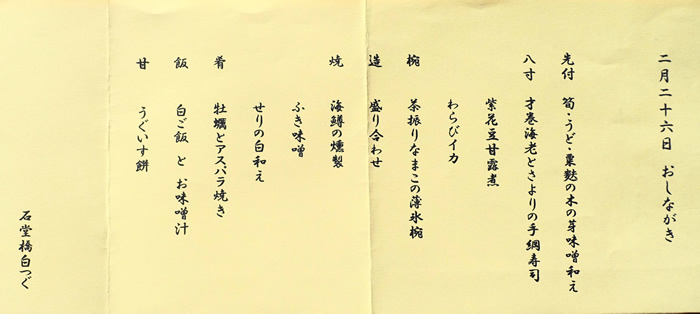 二月二十六日 おしながき
先付 筍・うど・粟麩の木の芽味噌和え
八寸 才巻海老とさよりの手綱寿司
紫花豆甘露煮
わらびイカ
椀 茶振りなまこの薄氷椀
造 盛り合わせ
焼 海鱒の燻製
ふき味噌
せりの白和え
肴 牡蠣とアスパラ焼き
飯 白ご飯 と お味噌汁
甘 うぐいす餅
石堂橋白つぐ